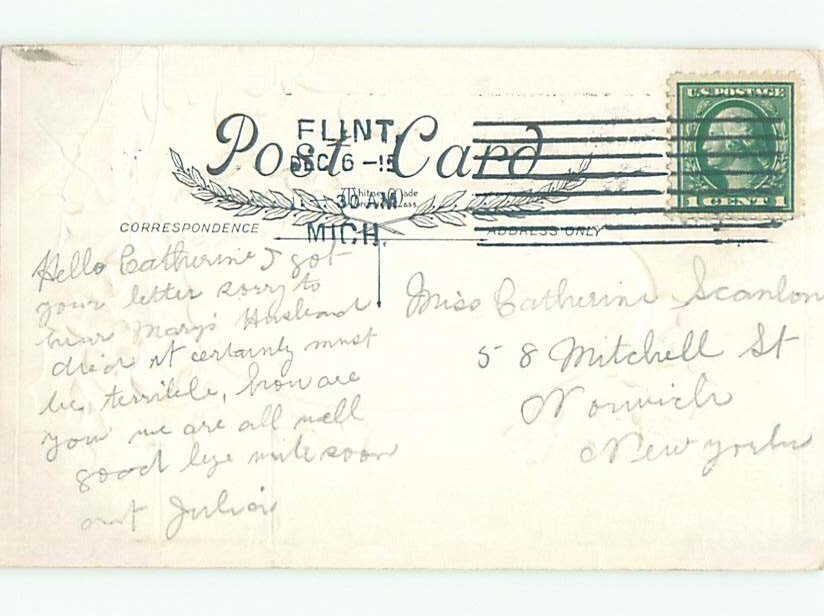 U.S. POSTAGE
1 CENT 1
FLINT,
DEC 6 -15
30 AM
MICH.
Post Card
Whitney Made
ass.
CORRESPONDENCE
ADDRESS ONLY
Hello Catherine I got
your letter sorry to
hear Mary's Husband
died it certainly must
be, terrible, how are
you we are all well
good bye write soon
ant Julia
Miss Catherine Scanlon
58 Mitchell St
Norwich
New york